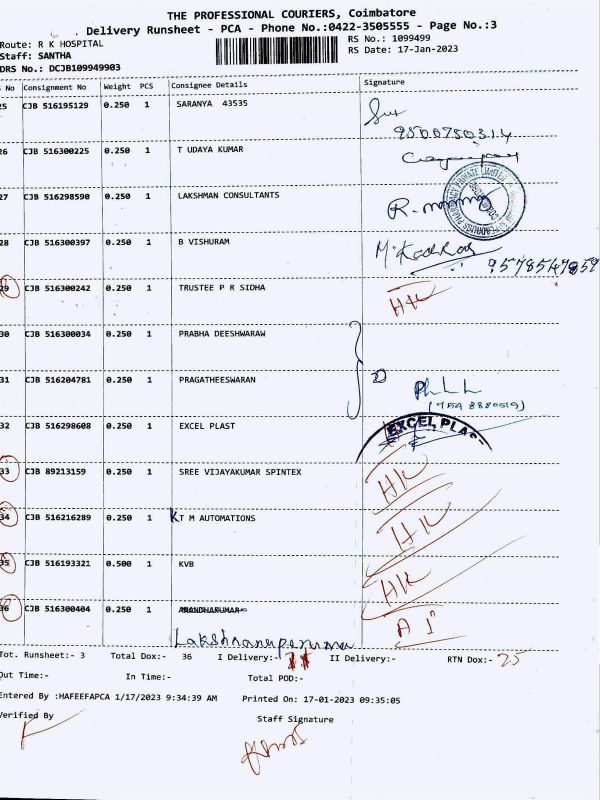 THE PROFESSIONAL COURIERS, Coimbatore
Delivery Runsheet - PCA - Phone No.:0422-3505555 - Page No.:3
Route: R K HOSPITAL
RS No.: 1099499
Staff: SANTHA
RS Date: 17-Jan-2023
DRS No.: DCJB109949903
No Consignment No Weight PCS Consignee Details Signature
25 CJB 516195129 0.250 1 SARANYA 43535
9500750314
26 CJB 516300225 0.250 1 T UDAYA KUMAR
27 CJB 516298590 0.250 1 LAKSHMAN CONSULTANTS
28 CJB 516300397 0.250 1 B VISHURAM
29 CJB 516300242 0.250 1 TRUSTEE P R SIDHA HK
30 CJB 516300034 0.250 1 PRABHA DEESHWARAW
31 CJB 516204781 0.250 1 PRAGATHEESWARAN
32 CJB 516298608 0.250 1 EXCEL PLAST EXCEL PLAST
33 CJB 89213159 0.250 1 SREE VIJAYAKUMAR SPINTEX HK
34 CJB 516216289 0.250 1 KT M AUTOMATIONS HK
35 CJB 516193321 0.500 1 KVB HK
36 CJB 516300404 0.250 1 ANANDHAKUMAR
Tot. Runsheet:- 3 Total Dox:- 36 I Delivery:- 11 II Delivery:- RTN Dox:- 25
Out Time:- In Time:- Total POD:-
Entered By :HAFEEFAPCA 1/17/2023 9:34:39 AM Printed On: 17-01-2023 09:35:05
Verified By Staff Signature